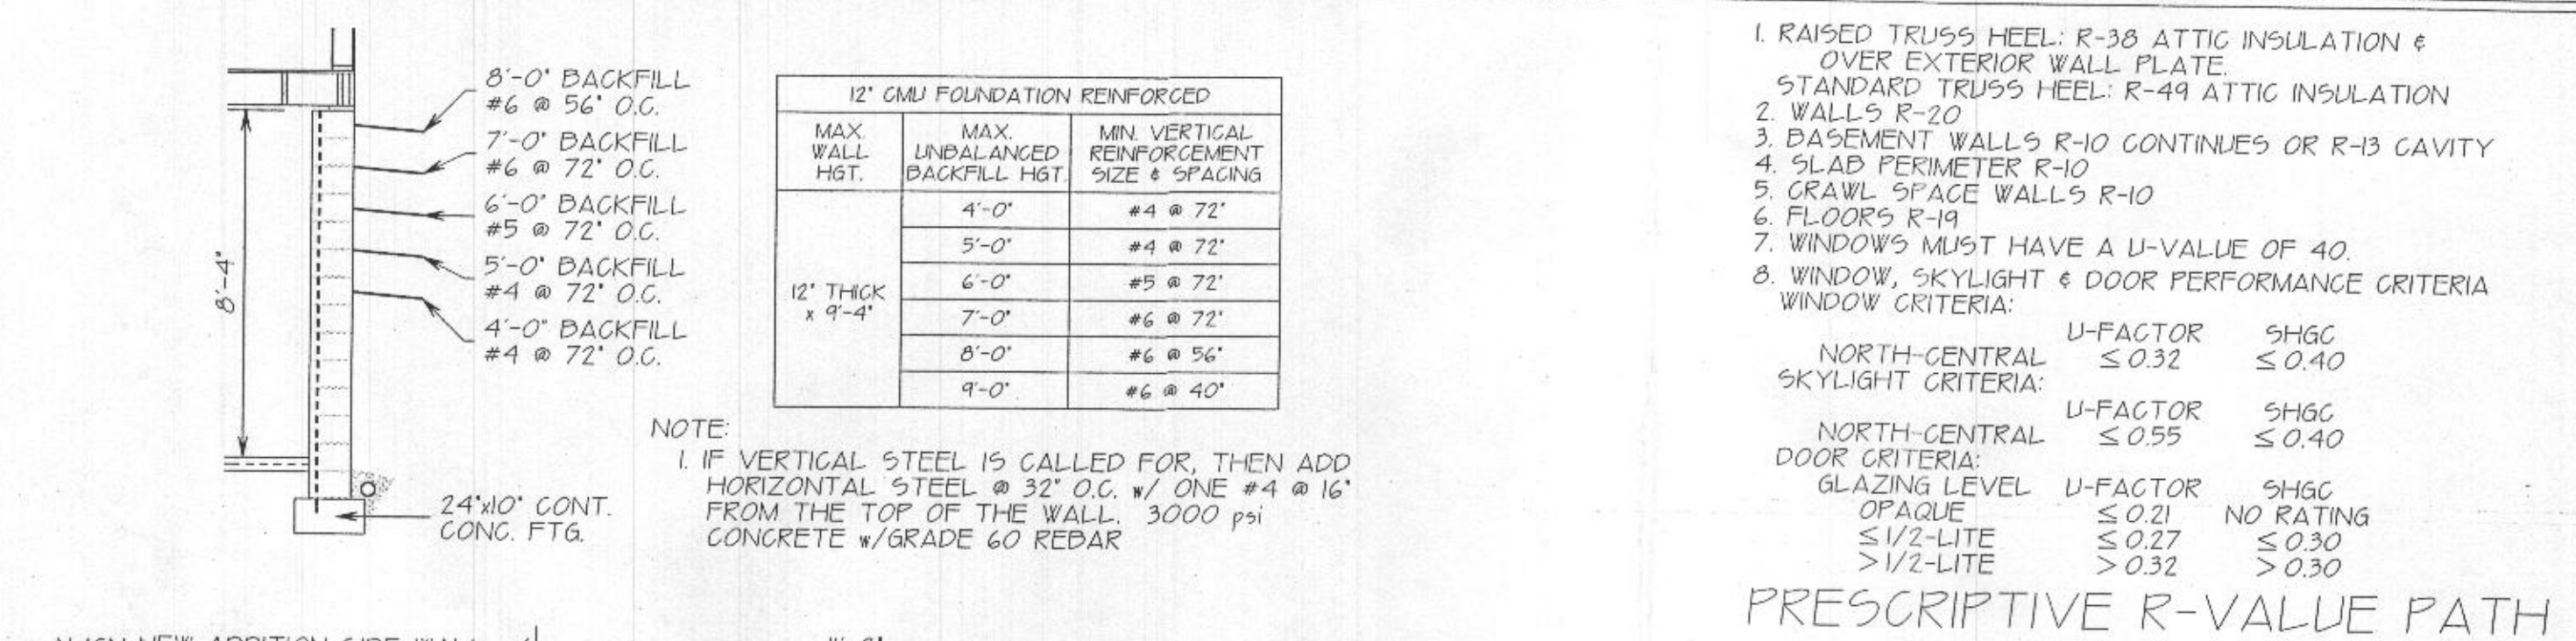 8'-0" BACKFILL
#6 @ 56" O.C.
7'-0" BACKFILL
#6 @ 72" O.C.
6'-0" BACKFILL
#5 @ 72" O.C.
5'-0" BACKFILL
#4 @ 72" O.C.
4'-0" BACKFILL
#4 @ 72" O.C.
8'-4"
24"x10" CONT.
CONC. FTG.
12" CMU FOUNDATION REINFORCED
MAX. WALL HGT.
MAX. UNBALANCED BACKFILL HGT.
MIN. VERTICAL REINFORCEMENT SIZE & SPACING
12" THICK x 9'-4"
4'-0" #4 @ 72"
5'-0" #4 @ 72"
6'-0" #5 @ 72"
7'-0" #6 @ 72"
8'-0" #6 @ 56"
9'-0" #6 @ 40"
NOTE:
1. IF VERTICAL STEEL IS CALLED FOR, THEN ADD
HORIZONTAL STEEL @ 32" O.C. w/ ONE #4 @ 16"
FROM THE TOP OF THE WALL. 3000 psi
CONCRETE w/GRADE 60 REBAR
1. RAISED TRUSS HEEL: R-38 ATTIC INSULATION &
OVER EXTERIOR WALL PLATE.
STANDARD TRUSS HEEL: R-49 ATTIC INSULATION
2. WALLS R-20
3. BASEMENT WALLS R-10 CONTINUES OR R-13 CAVITY
4. SLAB PERIMETER R-10
5. CRAWL SPACE WALLS R-10
6. FLOORS R-19
7. WINDOWS MUST HAVE A U-VALUE OF 40.
8. WINDOW, SKYLIGHT & DOOR PERFORMANCE CRITERIA
WINDOW CRITERIA:
U-FACTOR SHGC
NORTH-CENTRAL ≤ 0.32 ≤ 0.40
SKYLIGHT CRITERIA:
U-FACTOR SHGC
NORTH-CENTRAL ≤ 0.55 ≤ 0.40
DOOR CRITERIA:
GLAZING LEVEL U-FACTOR SHGC
OPAQUE ≤ 0.21 NO RATING
≤ 1/2-LITE ≤ 0.27 ≤ 0.30
> 1/2-LITE > 0.32 > 0.30
PRESCRIPTIVE R-VALUE PATH